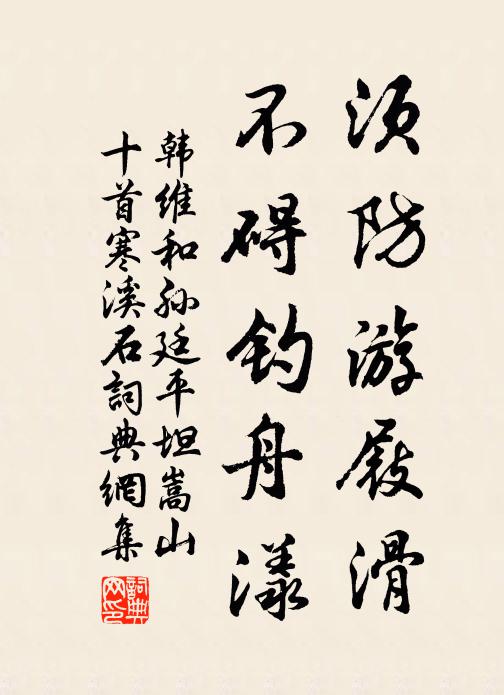 须防游屐滑
不碍钓舟漾
韩维和孙廷平坦嵩山
十首寒溪石詞典網集
詞典
网印